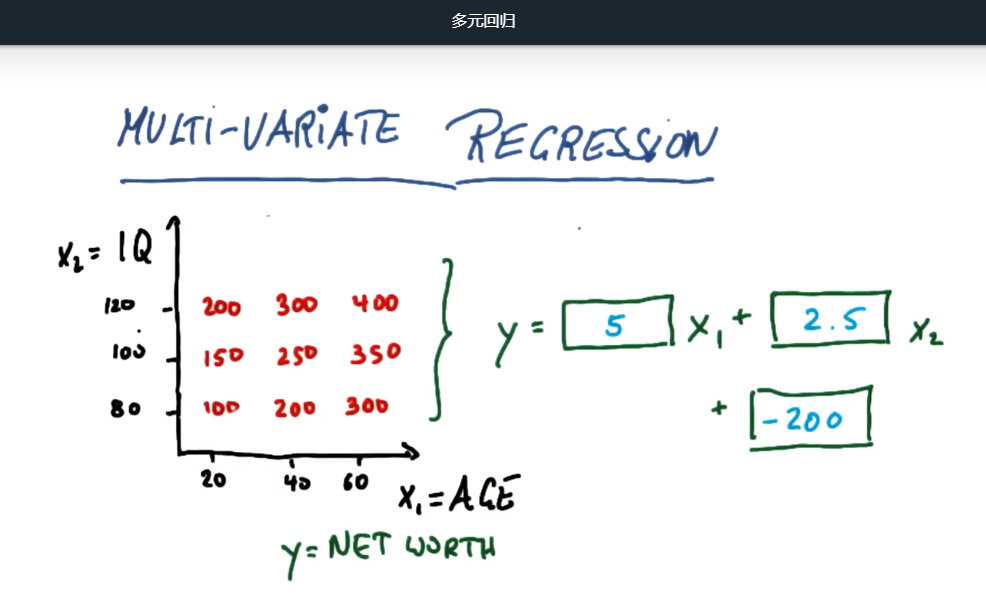 多元回归
MULTI-VARIATE REGRESSION
x₂ = IQ
120 200 300 400
100 150 250 350
80 100 200 300
20 40 60
x₁ = AGE
y = NET WORTH
y = 5 x₁ + 2.5 x₂
+ -200